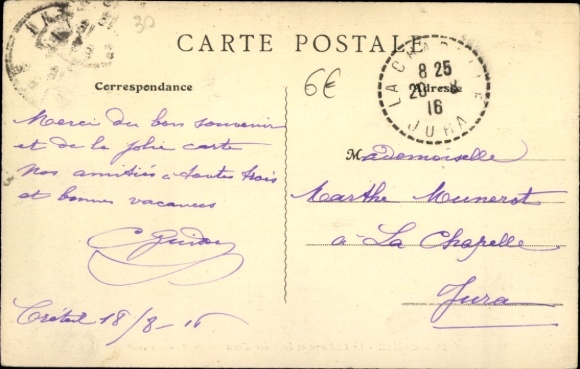 30
CARTE POSTALE
6€
LA CHAPELLE
8 25
20 - 8
16
JURA
Correspondance
Adresse
Merci du bon souvenir
et de la jolie carte
Nos amitiés à toutes trois
et bonnes vacances
Mademoiselle
Marthe Munerot
à La Chapelle
Jura
Créteil 18/8-16